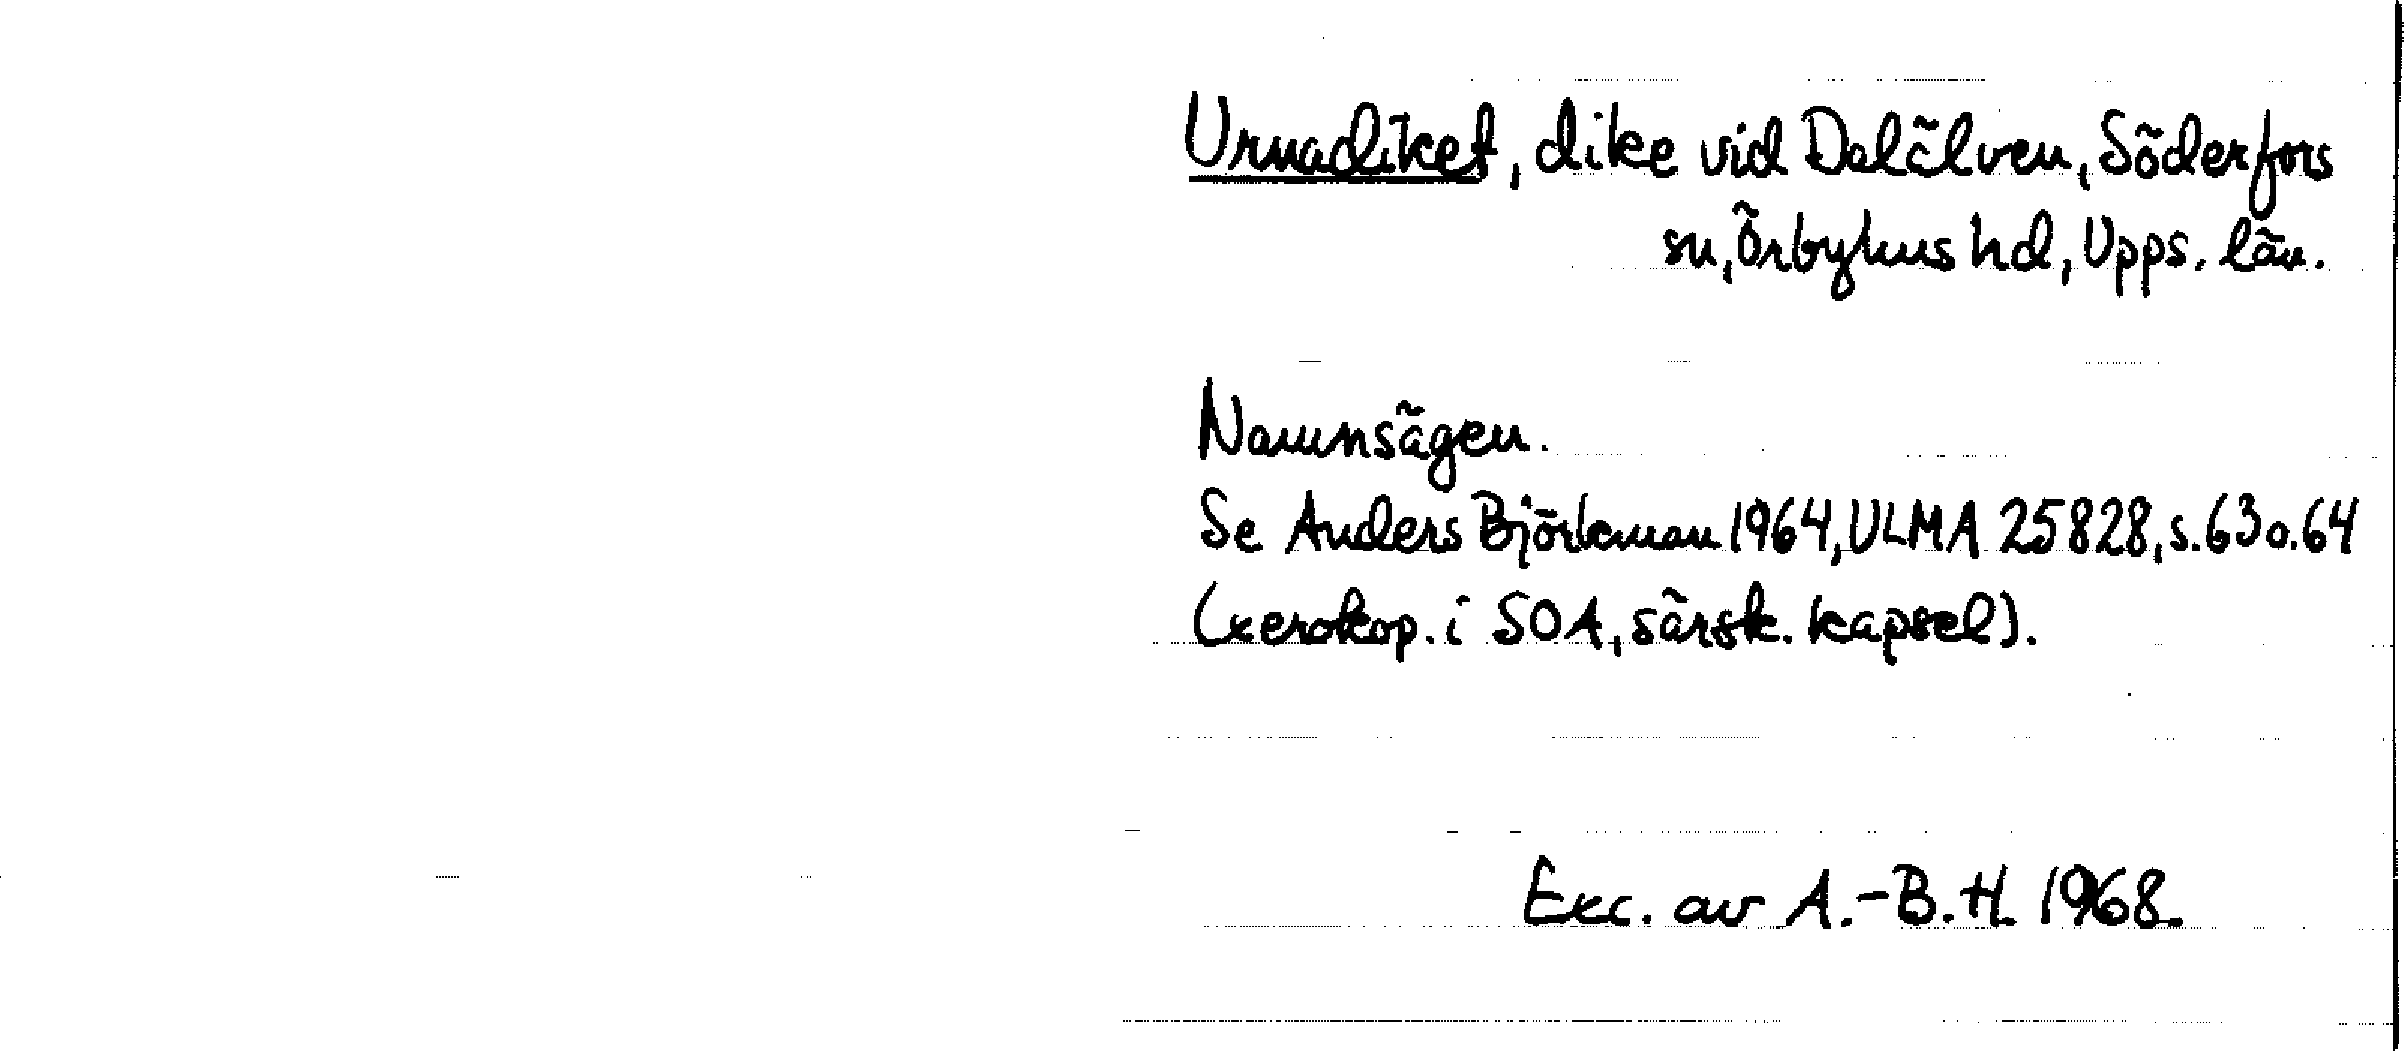 Urnadiket, dike vid Dalälven, Söderfors
sn, Örbyhus hd, Upps. län.
Namnsägen.
Se Anders Björkman 1964, ULMA 25828, s. 63 o. 64
(xerokop. i SOA, särsk. kapsel).
Exc. av A.-B. H. 1968.